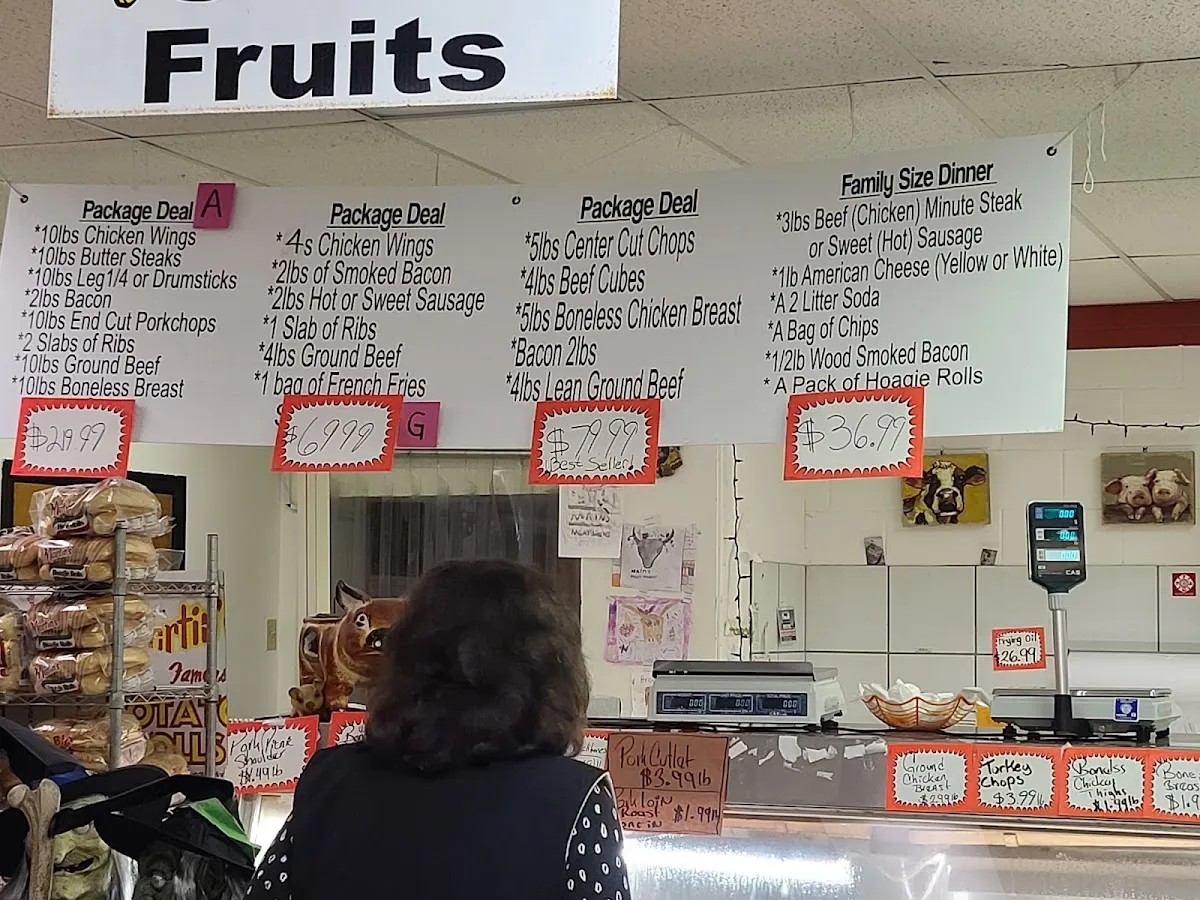 Fruits
Package Deal A
*10lbs Chicken Wings
*10lbs Butter Steaks
*10lbs Leg1/4 or Drumsticks
*2lbs Bacon
*10lbs End Cut Porkchops
*2 Slabs of Ribs
*10lbs Ground Beef
*10lbs Boneless Breast
Package Deal
*4s Chicken Wings
*2lbs of Smoked Bacon
*2lbs Hot or Sweet Sausage
*1 Slab of Ribs
*4lbs Ground Beef
*1 bag of French Fries
$69.99
G
Package Deal
*5lbs Center Cut Chops
*4lbs Beef Cubes
*5lbs Boneless Chicken Breast
*Bacon 2lbs
*4lbs Lean Ground Beef
$79.99
Best Seller!
Family Size Dinner
*3lbs Beef (Chicken) Minute Steak
or Sweet (Hot) Sausage
*1lb American Cheese (Yellow or White)
*A 2 Litter Soda
*A Bag of Chips
*1/2lb Wood Smoked Bacon
* A Pack of Hoagie Rolls
$36.99
Famous
Frying Oil
$26.99
0.00
0.00
0.00
CAS
Shoulder
Pork Cutlat
$3.99lb
Roast $1.99lb
Ground
Chicken
Breast
$2.99lb
Torkey
Chops
$3.99lb
Bonelss
Chicken
Thighs
$1.99lb